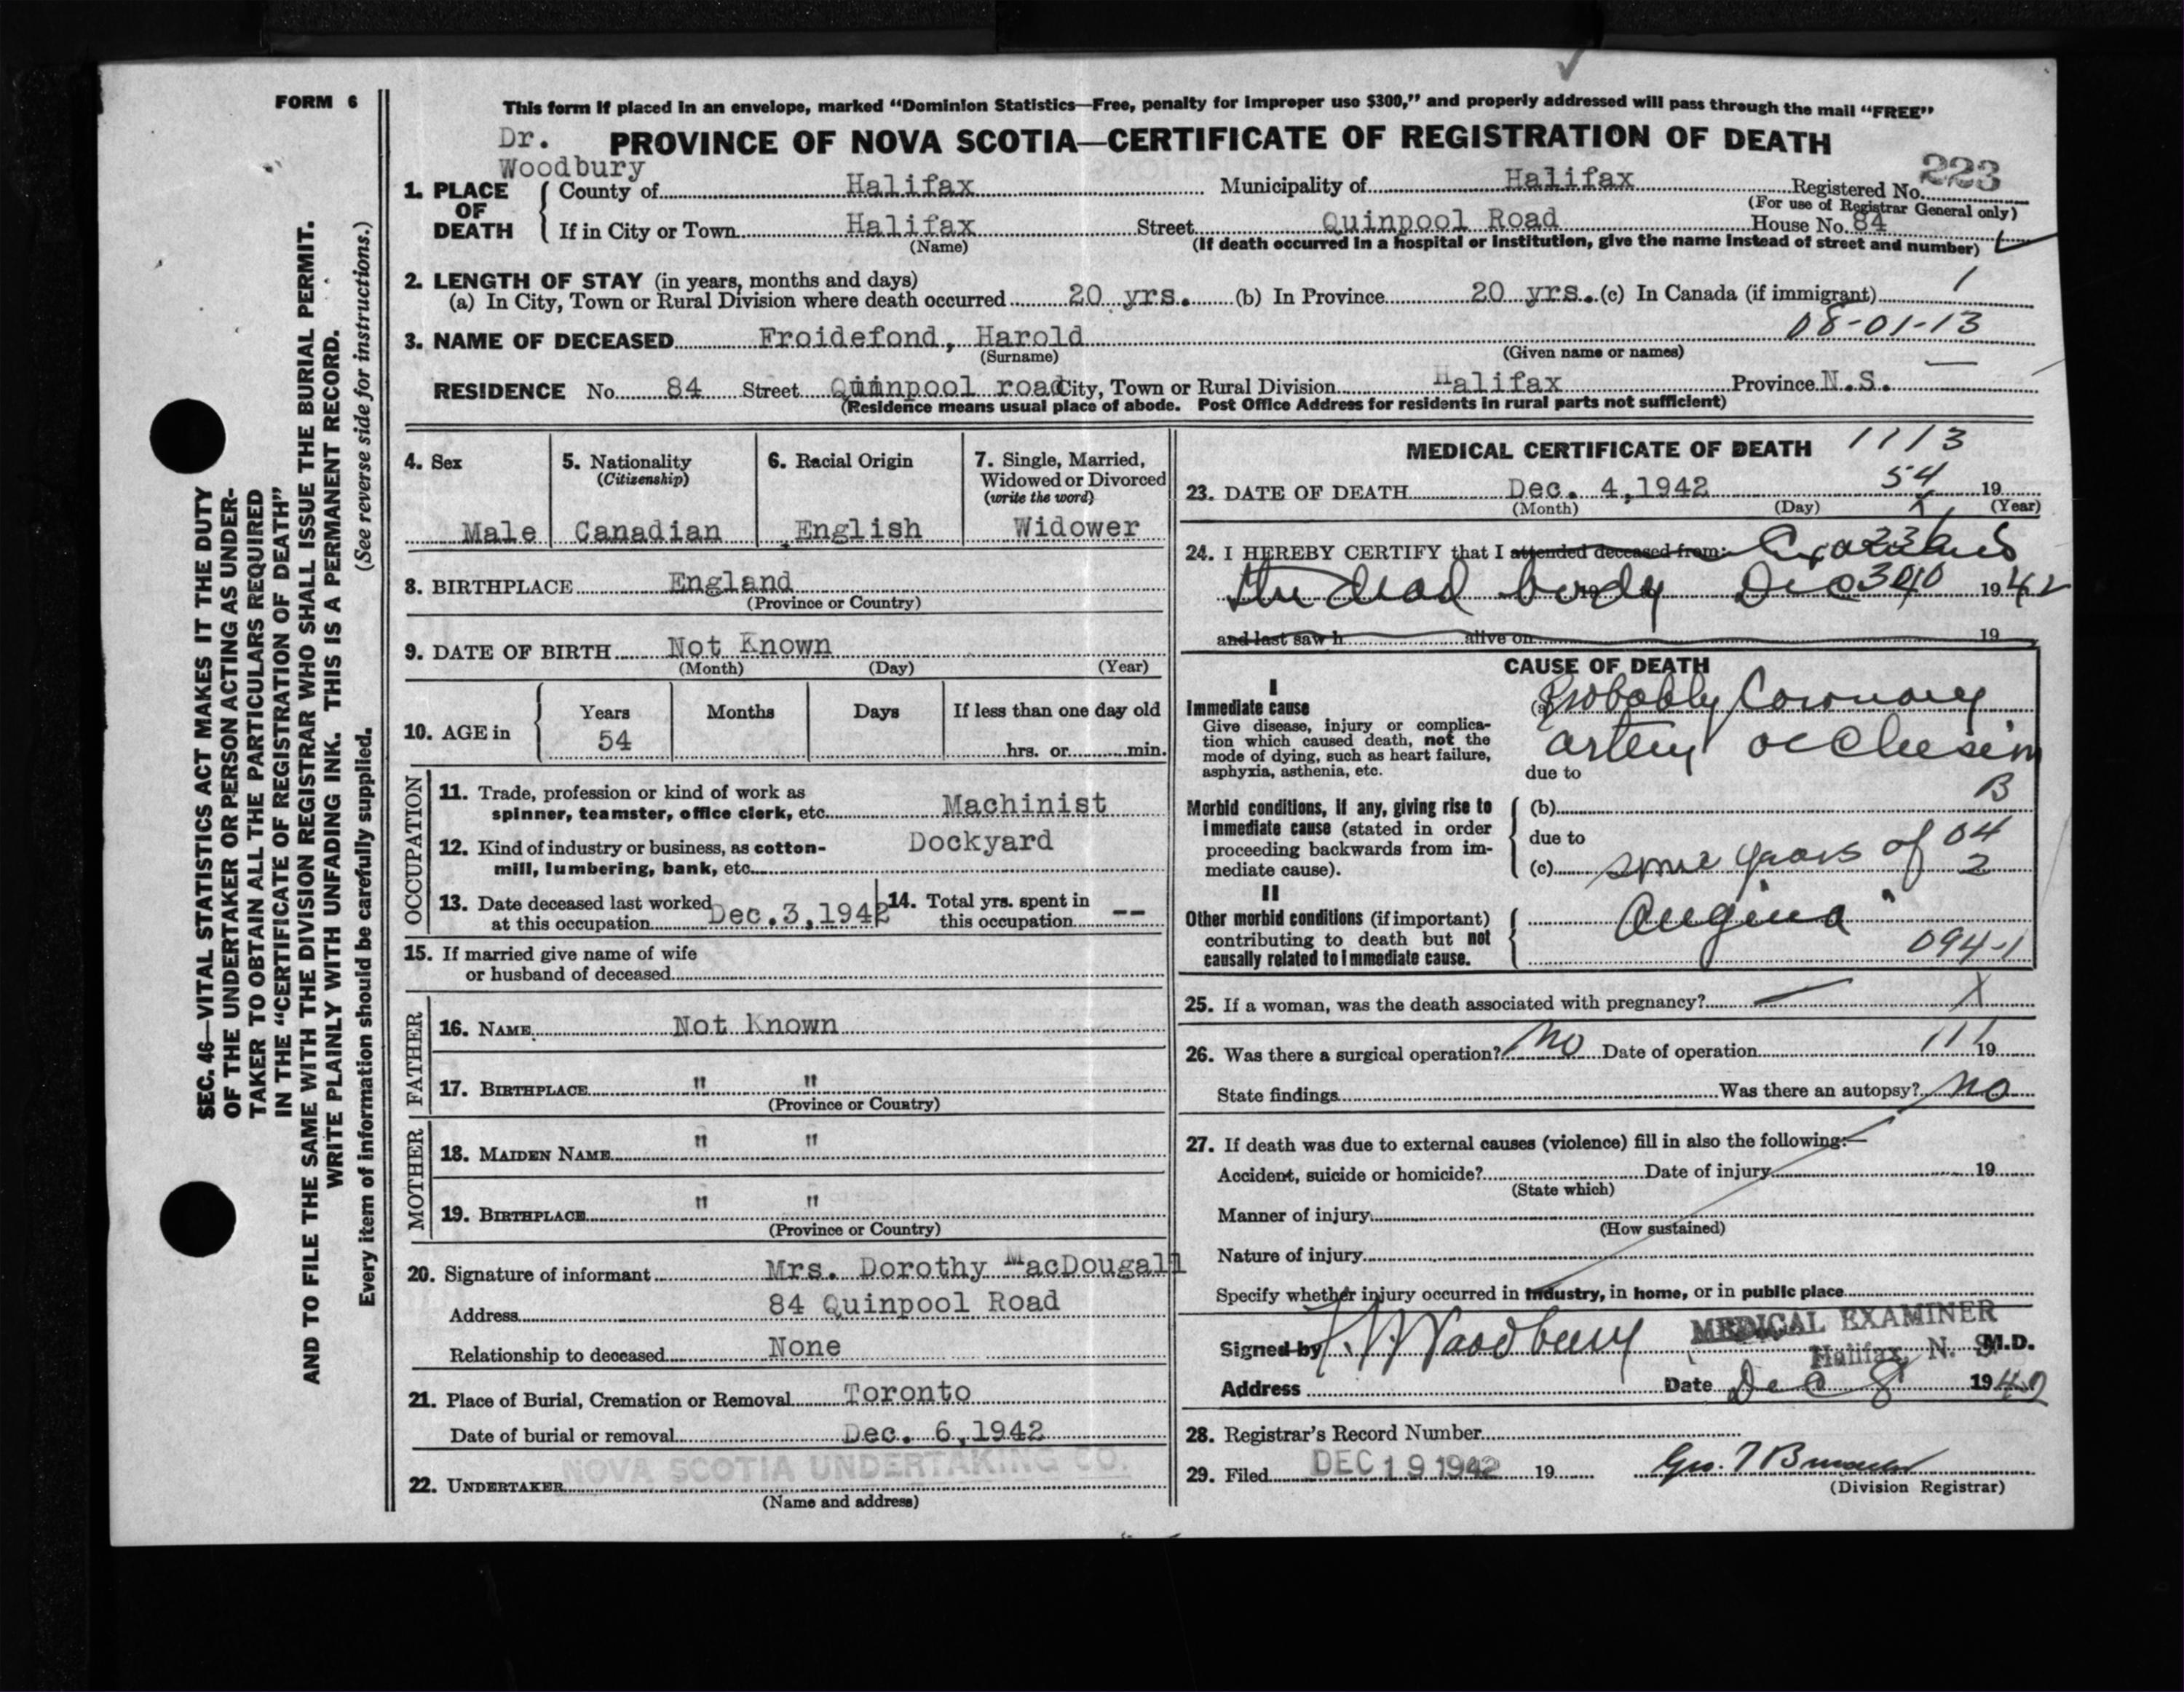 FORM 6
This form if placed in an envelope, marked “Dominion Statistics—Free, penalty for improper use $300,” and properly addressed will pass through the mail “FREE”
Dr. Woodbury
PROVINCE OF NOVA SCOTIA—CERTIFICATE OF REGISTRATION OF DEATH
1. PLACE OF DEATH
County of Halifax Municipality of Halifax Registered No. 223
(For use of Registrar General only)
If in City or Town Halifax Street Quinpool Road House No. 84
(Name) (If death occurred in a hospital or institution, give the name instead of street and number)
2. LENGTH OF STAY (in years, months and days)
(a) In City, Town or Rural Division where death occurred 20 yrs. (b) In Province 20 yrs. (c) In Canada (if immigrant) 1
08-01-13
3. NAME OF DECEASED Froidefond, Harold
(Surname) (Given name or names)
RESIDENCE No. 84 Street Quinpool road City, Town or Rural Division Halifax Province N.S.
(Residence means usual place of abode. Post Office Address for residents in rural parts not sufficient)
4. Sex
Male
5. Nationality
(Citizenship)
Canadian
6. Racial Origin
English
7. Single, Married,
Widowed or Divorced
(write the word)
Widower
8. BIRTHPLACE England
(Province or Country)
9. DATE OF BIRTH Not Known
(Month) (Day) (Year)
10. AGE in
Years Months Days If less than one day old
54
hrs. or min.
OCCUPATION
11. Trade, profession or kind of work as
spinner, teamster, office clerk, etc. Machinist
12. Kind of industry or business, as cotton-
mill, lumbering, bank, etc. Dockyard
13. Date deceased last worked
at this occupation Dec.3,1942
14. Total yrs. spent in
this occupation --
15. If married give name of wife
or husband of deceased
FATHER
16. NAME Not Known
17. BIRTHPLACE " "
(Province or Country)
MOTHER
18. MAIDEN NAME " "
19. BIRTHPLACE " "
(Province or Country)
20. Signature of informant Mrs. Dorothy MacDougall
Address 84 Quinpool Road
Relationship to deceased None
21. Place of Burial, Cremation or Removal Toronto
Date of burial or removal Dec. 6,1942
22. UNDERTAKER NOVA SCOTIA UNDERTAKING CO.
(Name and address)
MEDICAL CERTIFICATE OF DEATH 1113
54
23. DATE OF DEATH Dec. 4,1942 19
(Month) (Day) (Year)
24. I HEREBY CERTIFY that I attended deceased from:
the dead body Dec 1942
and last saw h alive on 19
CAUSE OF DEATH
I
Immediate cause
Give disease, injury or complica-
tion which caused death, not the
mode of dying, such as heart failure,
asphyxia, asthenia, etc.
(a) Probably Coronary
artery occlusion
due to
Morbid conditions, if any, giving rise to
immediate cause (stated in order
proceeding backwards from im-
mediate cause).
(b) B
due to 04
(c) some years of 2
II
Other morbid conditions (if important)
contributing to death but not
causally related to immediate cause.
Angina "
094-1
25. If a woman, was the death associated with pregnancy? — X
26. Was there a surgical operation? No Date of operation 19
State findings Was there an autopsy? No
27. If death was due to external causes (violence) fill in also the following:—
Accident, suicide or homicide? Date of injury 19
(State which)
Manner of injury
(How sustained)
Nature of injury
Specify whether injury occurred in industry, in home, or in public place
Signed by Woodbury MEDICAL EXAMINER
Halifax, N. S. M.D.
Address Date Dec 8 1942
28. Registrar's Record Number
29. Filed DEC 19 1942 19
(Division Registrar)
SEC. 46—VITAL STATISTICS ACT MAKES IT THE DUTY
OF THE UNDERTAKER OR PERSON ACTING AS UNDER-
TAKER TO OBTAIN ALL THE PARTICULARS REQUIRED
IN THE “CERTIFICATE OF REGISTRATION OF DEATH”
AND TO FILE THE SAME WITH THE DIVISION REGISTRAR WHO SHALL ISSUE THE BURIAL PERMIT.
WRITE PLAINLY WITH UNFADING INK. THIS IS A PERMANENT RECORD.
Every item of information should be carefully supplied. (See reverse side for instructions.)